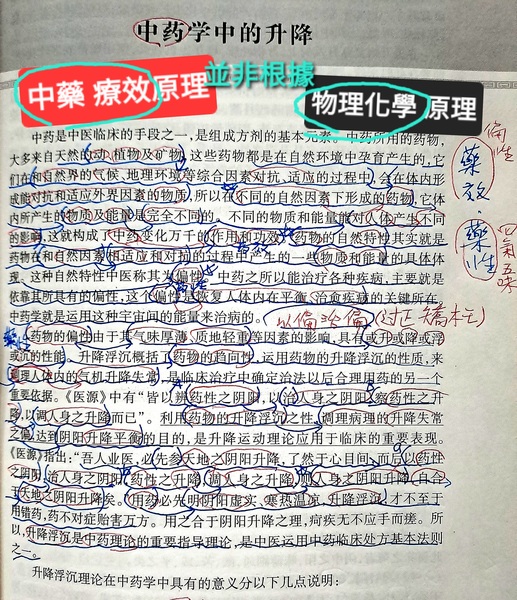 中药学中的升降
並非根據
中藥 療效原理
物理化學 原理
中药是中医临床的手段之一，是组成方剂的基本元素。中药所用的药物，
大多来自天然的动、植物及矿物，这些药物都是在自然环境中孕育产生的，它
们在和自然界的气候、地理环境等综合因素对抗、适应的过程中，会在体内形
成能对抗和适应外界因素的物质，所以在不同的自然因素下形成的药物，它体
内所产生的物质及能量是完全不同的。不同的物质和能量能对人体产生不同
的影响，这就构成了中药变化万千的作用和功效。药物的自然特性其实就是
药物在和自然因素相适应和对抗的过程中产生的一些物质和能量的具体体
现。这种自然特性中医称其为偏性。中药之所以能治疗各种疾病，主要就是
依靠其所具有的偏性，这个偏性是恢复人体内在平衡、治愈疾病的关键所在。
中药学就是运用这种宇宙间的能量来治病的。
以偏救偏(过正矯枉)
药物的偏性由于其气味厚薄、质地轻重等因素的影响，具有或升或降或浮
或沉的性能。升降浮沉概括了药物的趋向性，运用药物升降浮沉的性质，来
调理人体内的气机升降失常，是临床治疗中确定治法以后合理用药的另一个
重要依据。《医源》中有“皆以辨药性之阴阳，以治人身之阴阳；察药性之升
降，以调人身之升降而已”。利用药物的升降浮沉之性，调理病理的升降失常
之偏，达到阴阳升降平衡的目的，是升降运动理论应用于临床的重要表现。
《医源》指出：“吾人业医，必先参天地之阴阳升降，了然于心目间，而后以药性
之阴阳，治人身之阴阳；药性之升降，调人身之升降，则人身之阴阳升降，自合
于天地之阴阳升降矣。用药必先明阴阳虚实、寒热温凉、升降浮沉，才不至于
用错药，药不对症贻害万方。用之合于阴阳升降之理，疴疾无不应手而瘥。所
以，升降浮沉是中药理论的重要指导理论，是中医运用中药临床处方基本法则
之一。
升降浮沉理论在中药学中具有的意义分以下几点说明：
偏性
藥效·藥性
四氣五味